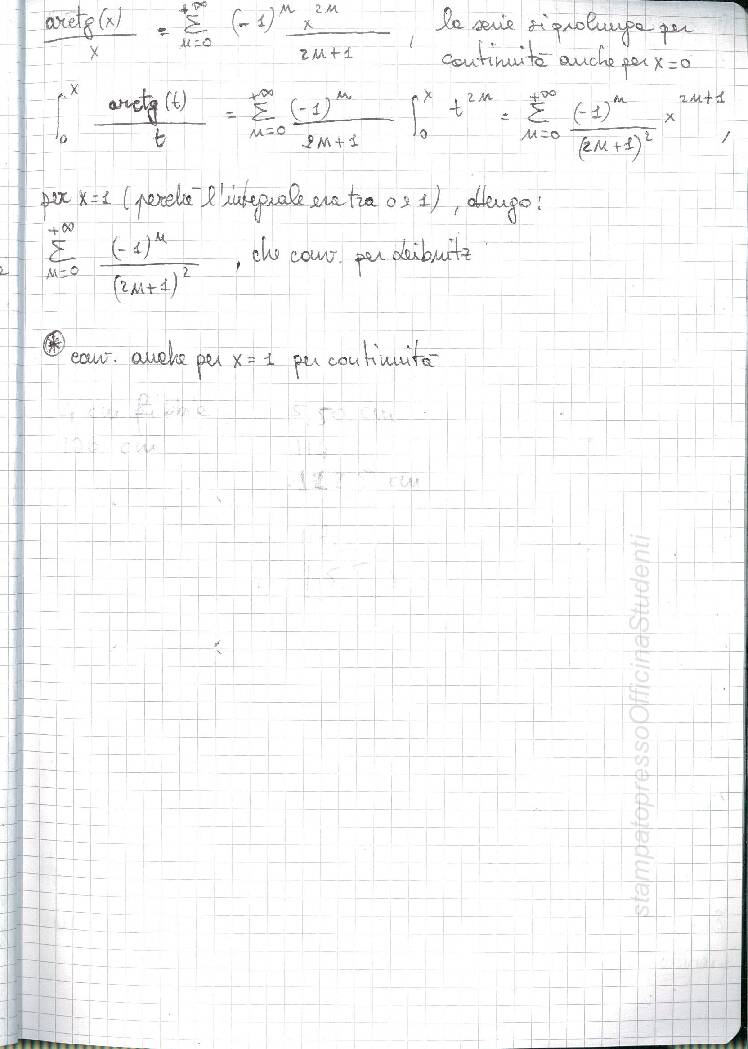 arctg(x)/x = Σ_{n=0}^{+∞} (-1)^n x^{2n}/2n+1 , la serie si prolunga per
continuità anche per x=0
∫_0^x arctg(t)/t = Σ_{n=0}^{+∞} (-1)^n/2n+1 ∫_0^x t^{2n} = Σ_{n=0}^{+∞} (-1)^n/(2n+1)^2 x^{2n+1} ,
per x=1 (perché l'integrale era tra 0 e 1), ottengo:
Σ_{n=0}^{+∞} (-1)^n/(2n+1)^2 , che conv. per Leibnitz
* conv. anche per x=1 per continuità
stampatopressoOfficinaStudenti